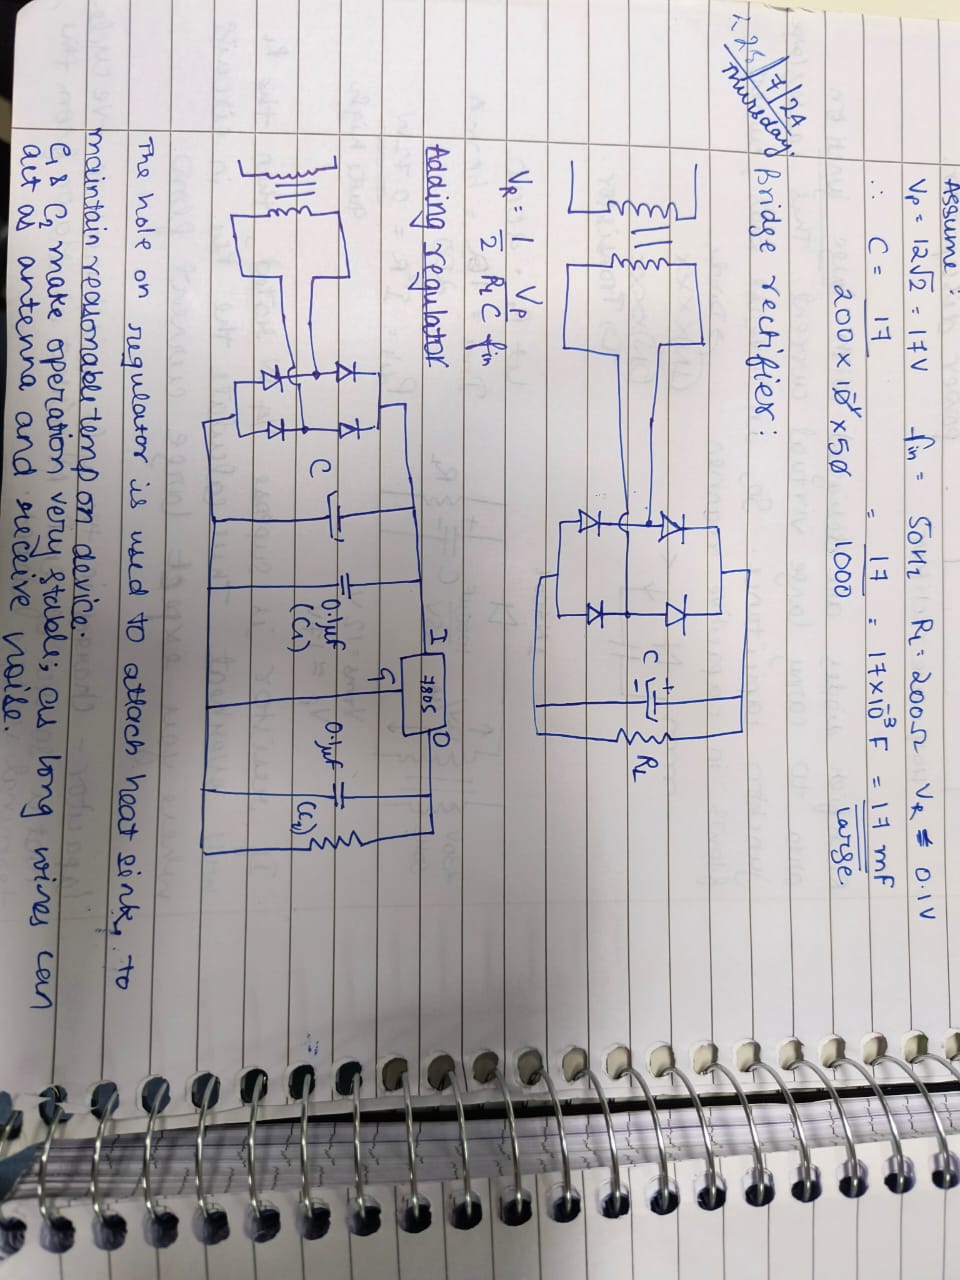 Assume :
Vp = 12√2 = 17V fin = 50Hz RL = 200Ω VR ≤ 0.1V
∴ C = 17 / 200 × 10⁻¹ × 50 = 17 / 1000 = 17×10⁻³ F = 17 mF
large
25/7/24
Thursday
Bridge rectifier :
C + − RL
VR = 1/2 Vp / RL C fin
Adding regulator
I 7805 O
G
C 0.1μf (C1) 0.1μf (C2)
The hole on regulator is used to attach heat sink, to
maintain reasonable temp on device.
C1 & C2 make operation very stable; as long wires can
act as antenna and receive noise.